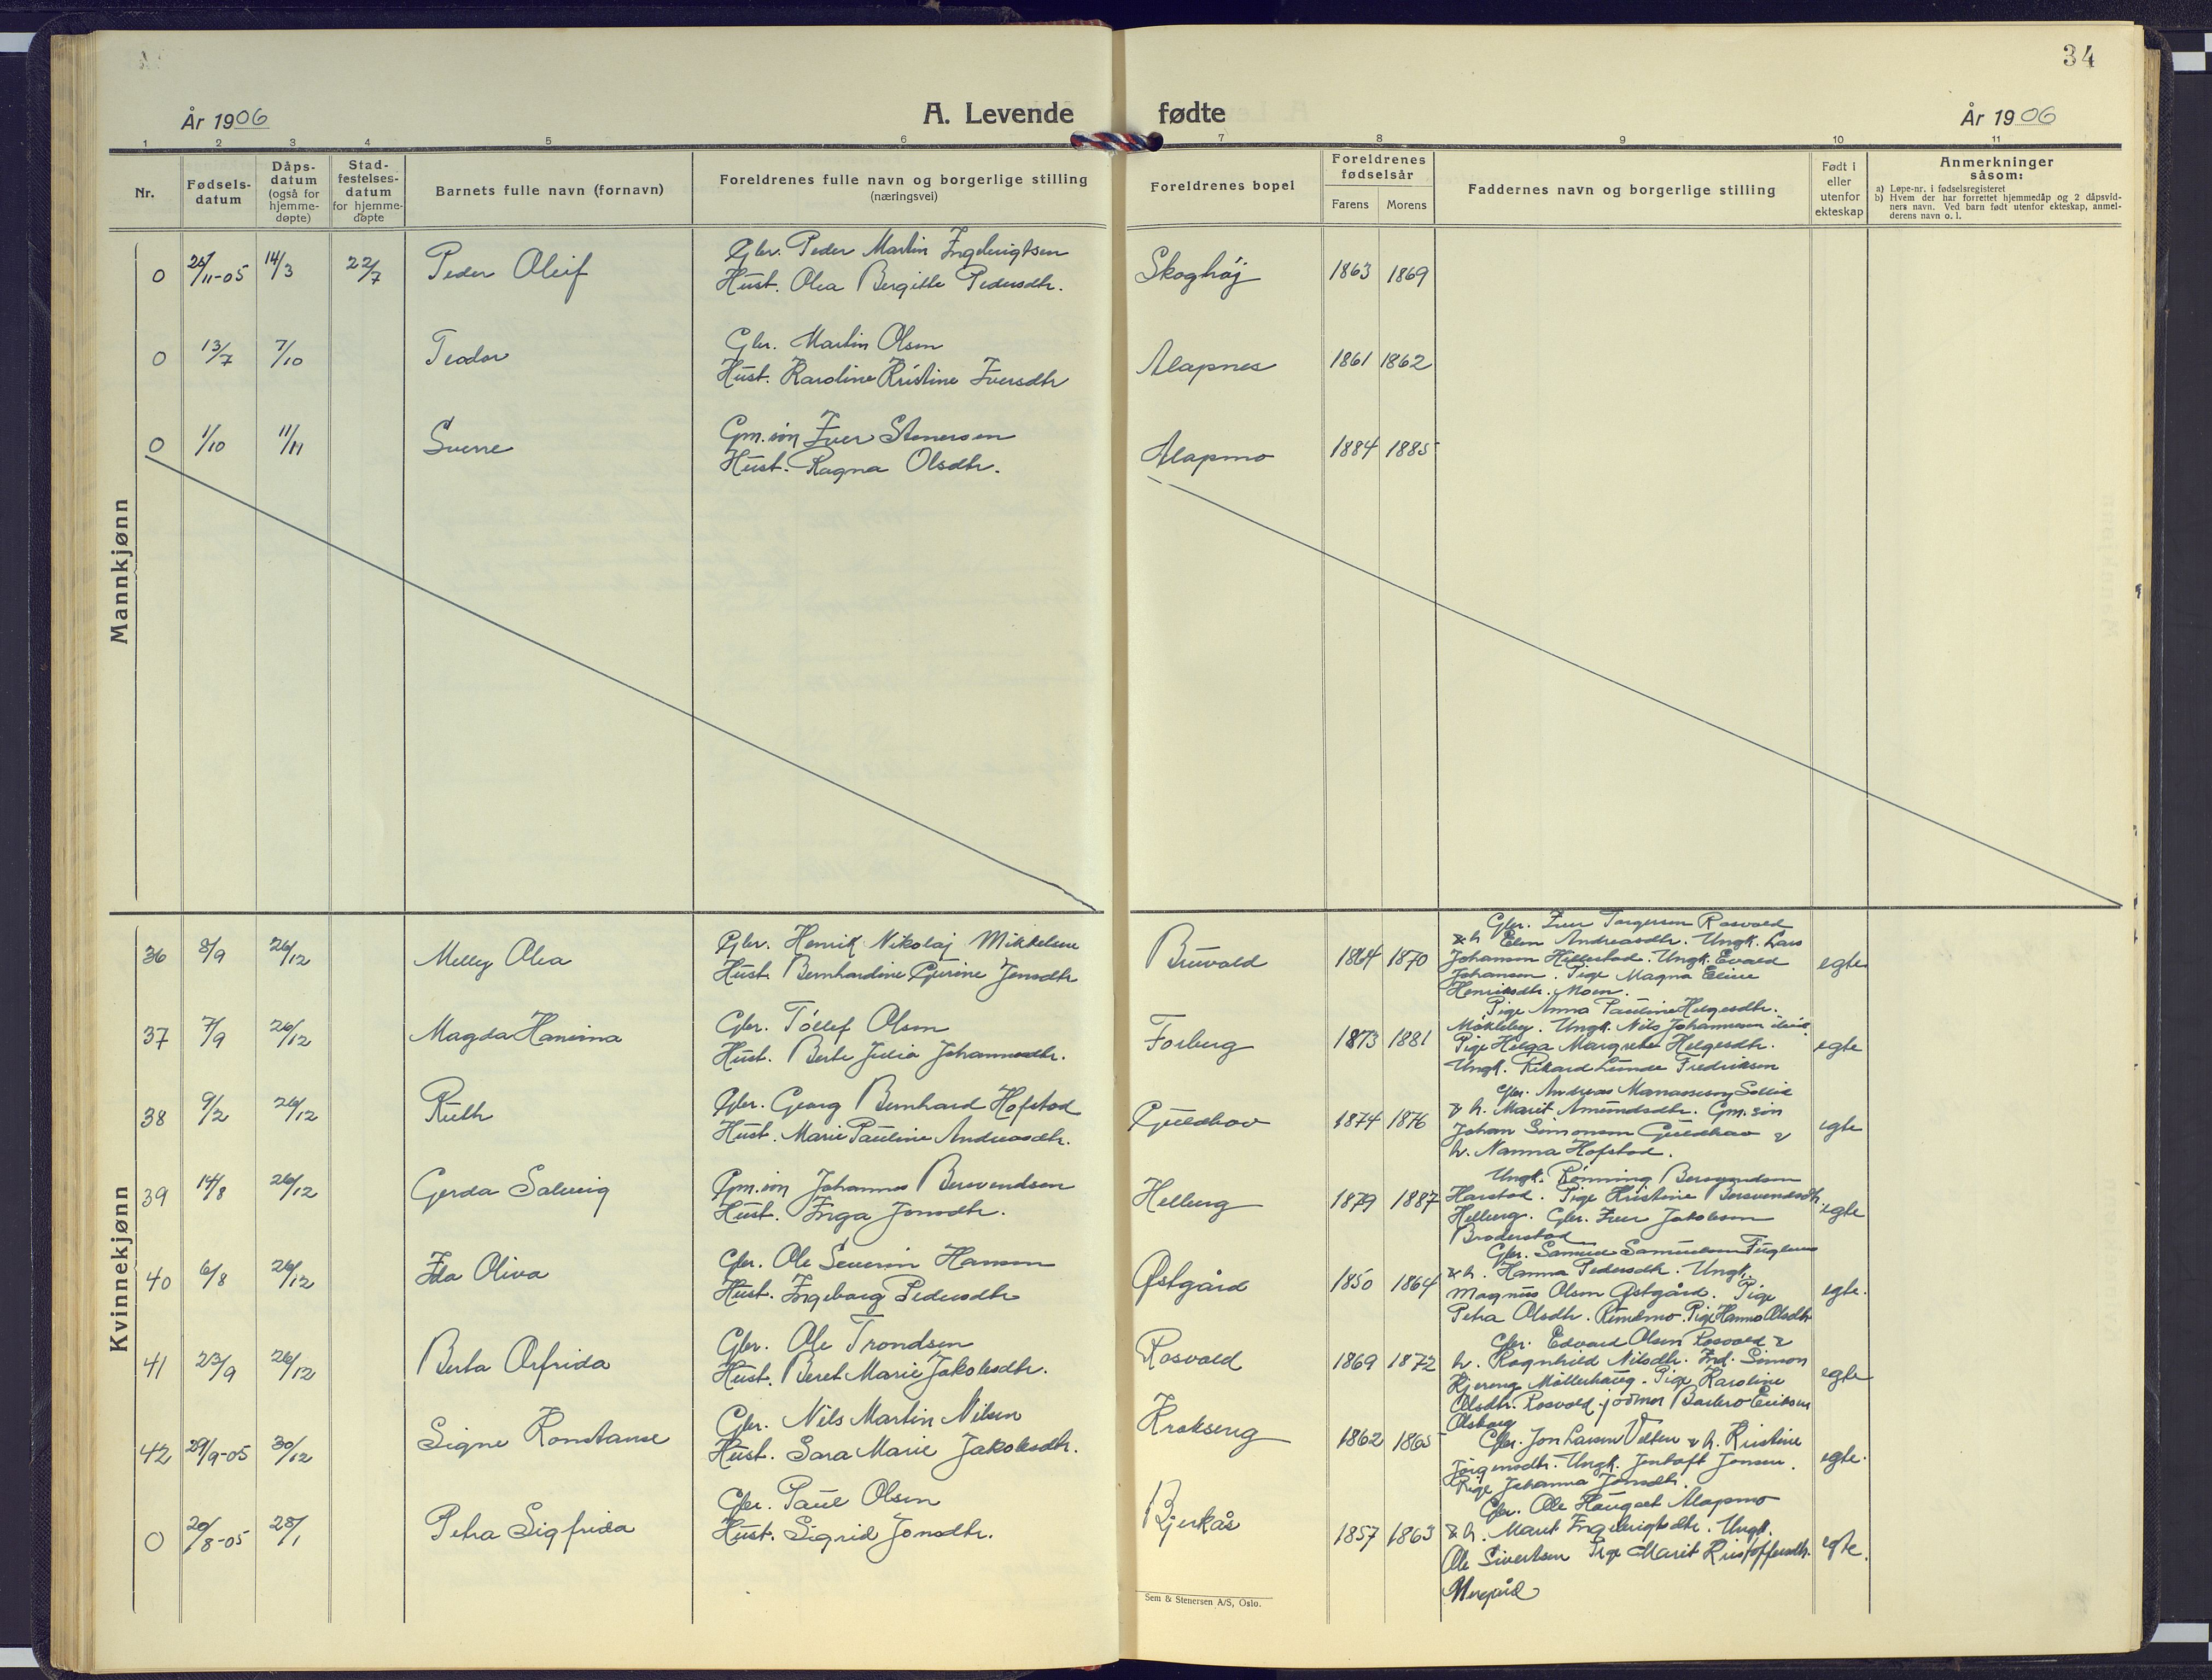 34
År 1906
A. Levende fødte
År 1906
1 2 3 4 5 6 7 8 9 10 11
Nr.
Fødsels-
datum
Dåps-
datum
(også for
hjemme-
døpte)
Stad-
festelses-
datum
for hjemme-
døpte
Barnets fulle navn (fornavn)
Foreldrenes fulle navn og borgerlige stilling
(næringsvei)
Foreldrenes bopel
Foreldrenes
fødselsår
Farens Morens
Faddernes navn og borgerlige stilling
Født i
eller
utenfor
ekteskap
Anmerkninger
såsom:
a) Løpe-nr. i fødselsregisteret
b) Hvem der har forrettet hjemmedåp og 2 dåpsvid-
ners navn. Ved barn født utenfor ekteskap, anmel-
derens navn o. l.
Mannkjønn
0 /11-05 14/3 22/7 Peder Oleif
Gbr. Peder Martin Ingebrigtsen
Hust. Olea Bergitte Pedersdtr.
Skoghøj 1863 1869
0 13/7 7/10 Teodor
Gbr. Martin Olsen
Hust. Karoline Kristine Iversdtr
Alapnes 1861 1862
0 1/10 11/11 Sverre
Gm.søn Iver Stenersen
Hust. Ragna Olsdtr.
Alapmo 1884 1885
Kvinnekjønn
36 8/9 26/12 Melly Olea
Gbr. Henrik Nikolaj Mikkelsen
Hust. Bernhardine Gurine Jensdtr
Bruvold 1864 1870
Gbr. Iver Torgersen Rosvold
& h. Elen Andreasdtr. Ungk. Lars
Johansen Hillestad. Ungk. Evald
Johansen. Pige Magna Eline
Henriksdtr. Moen.
egte
37 7/9 26/12 Magda Hansina
Gbr. Tollef Olsen
Hust. Berte Julia Johannesdtr.
Forberg 1873 1881
Pige Anna Pauline Helgesdtr.
Møkleby. Ungk. Nils Johannesen
Pige Helga Margrete Helgesdtr.
Ungk. Rikard Lunde Fredriksen
egte
38 9/2 26/12 Ruth
Gbr. Georg Bernhard Hofstad
Hust. Marie Pauline Andreasdtr.
Guldhav 1874 1876
Gbr. Andreas Manassesen Solli
& h. Marit Amundsdtr. Gm.søn
Johan Simonsen Guldhav &
h. Nanna Hofstad.
egte
39 14/8 26/12 Gerda Solveig
Gm.søn Johannes Bersvendsen
Hust. Inga Jonsdtr.
Helberg 1879 1887
Ungk. Rønning Bersvendsen
Harstad. Pige Kristine Bersvendsdtr.
Helberg. Gbr. Iver Jakobsen
Broderstad
egte
40 6/8 26/12 Ida Oliva
Gbr. Ole Severin Hansen
Hust. Ingeborg Pedersdtr
Østgård 1850 1864
Gbr. Samuel Samuelsen Fuglenes
& h. Hanna Pedersdtr. Ungk.
Magnus Olsen Østgård. Pige
Petra Olsdtr. Rundmo. Pige Hanna Olsdtr
egte.
41 23/9 26/12 Berta Orfrida
Gbr. Ole Trondsen
Hust. Beret Marie Jakobsdtr.
Rosvold 1869 1872
Gbr. Edvard Olsen Rosvold &
h. Ragnhild Nilsdtr. Ind. Simon
Kjereng Møllerhaug. Pige Karoline
Olsdtr. Rosvold. jodmor Barbro Eriksen
Olsborg
egte
42 29/9-05 30/12 Signe Konstanse
Gbr. Nils Martin Nilsen
Hust. Sara Marie Jakobsdtr.
Krokseng 1862 1865
Gbr. Jon Larsen Velten & h. Kristine
Jørgensdtr. Ungk. Jentoft Jensen.
Pige Johanna Jonsdtr.
egte.
0 20/8-05 28/1 Petra Sigfrida
Gbr. Paul Olsen
Hust. Sigrid Jonsdtr.
Bjerkås 1857 1863
Gbr. Ole Hauget Alapmo
& h. Marit Ingebrigtsdtr. Ungk.
Ole Sivertsen Pige Marit Kristoffersdtr.
egte.
Sem & Stenersen A/S, Oslo.